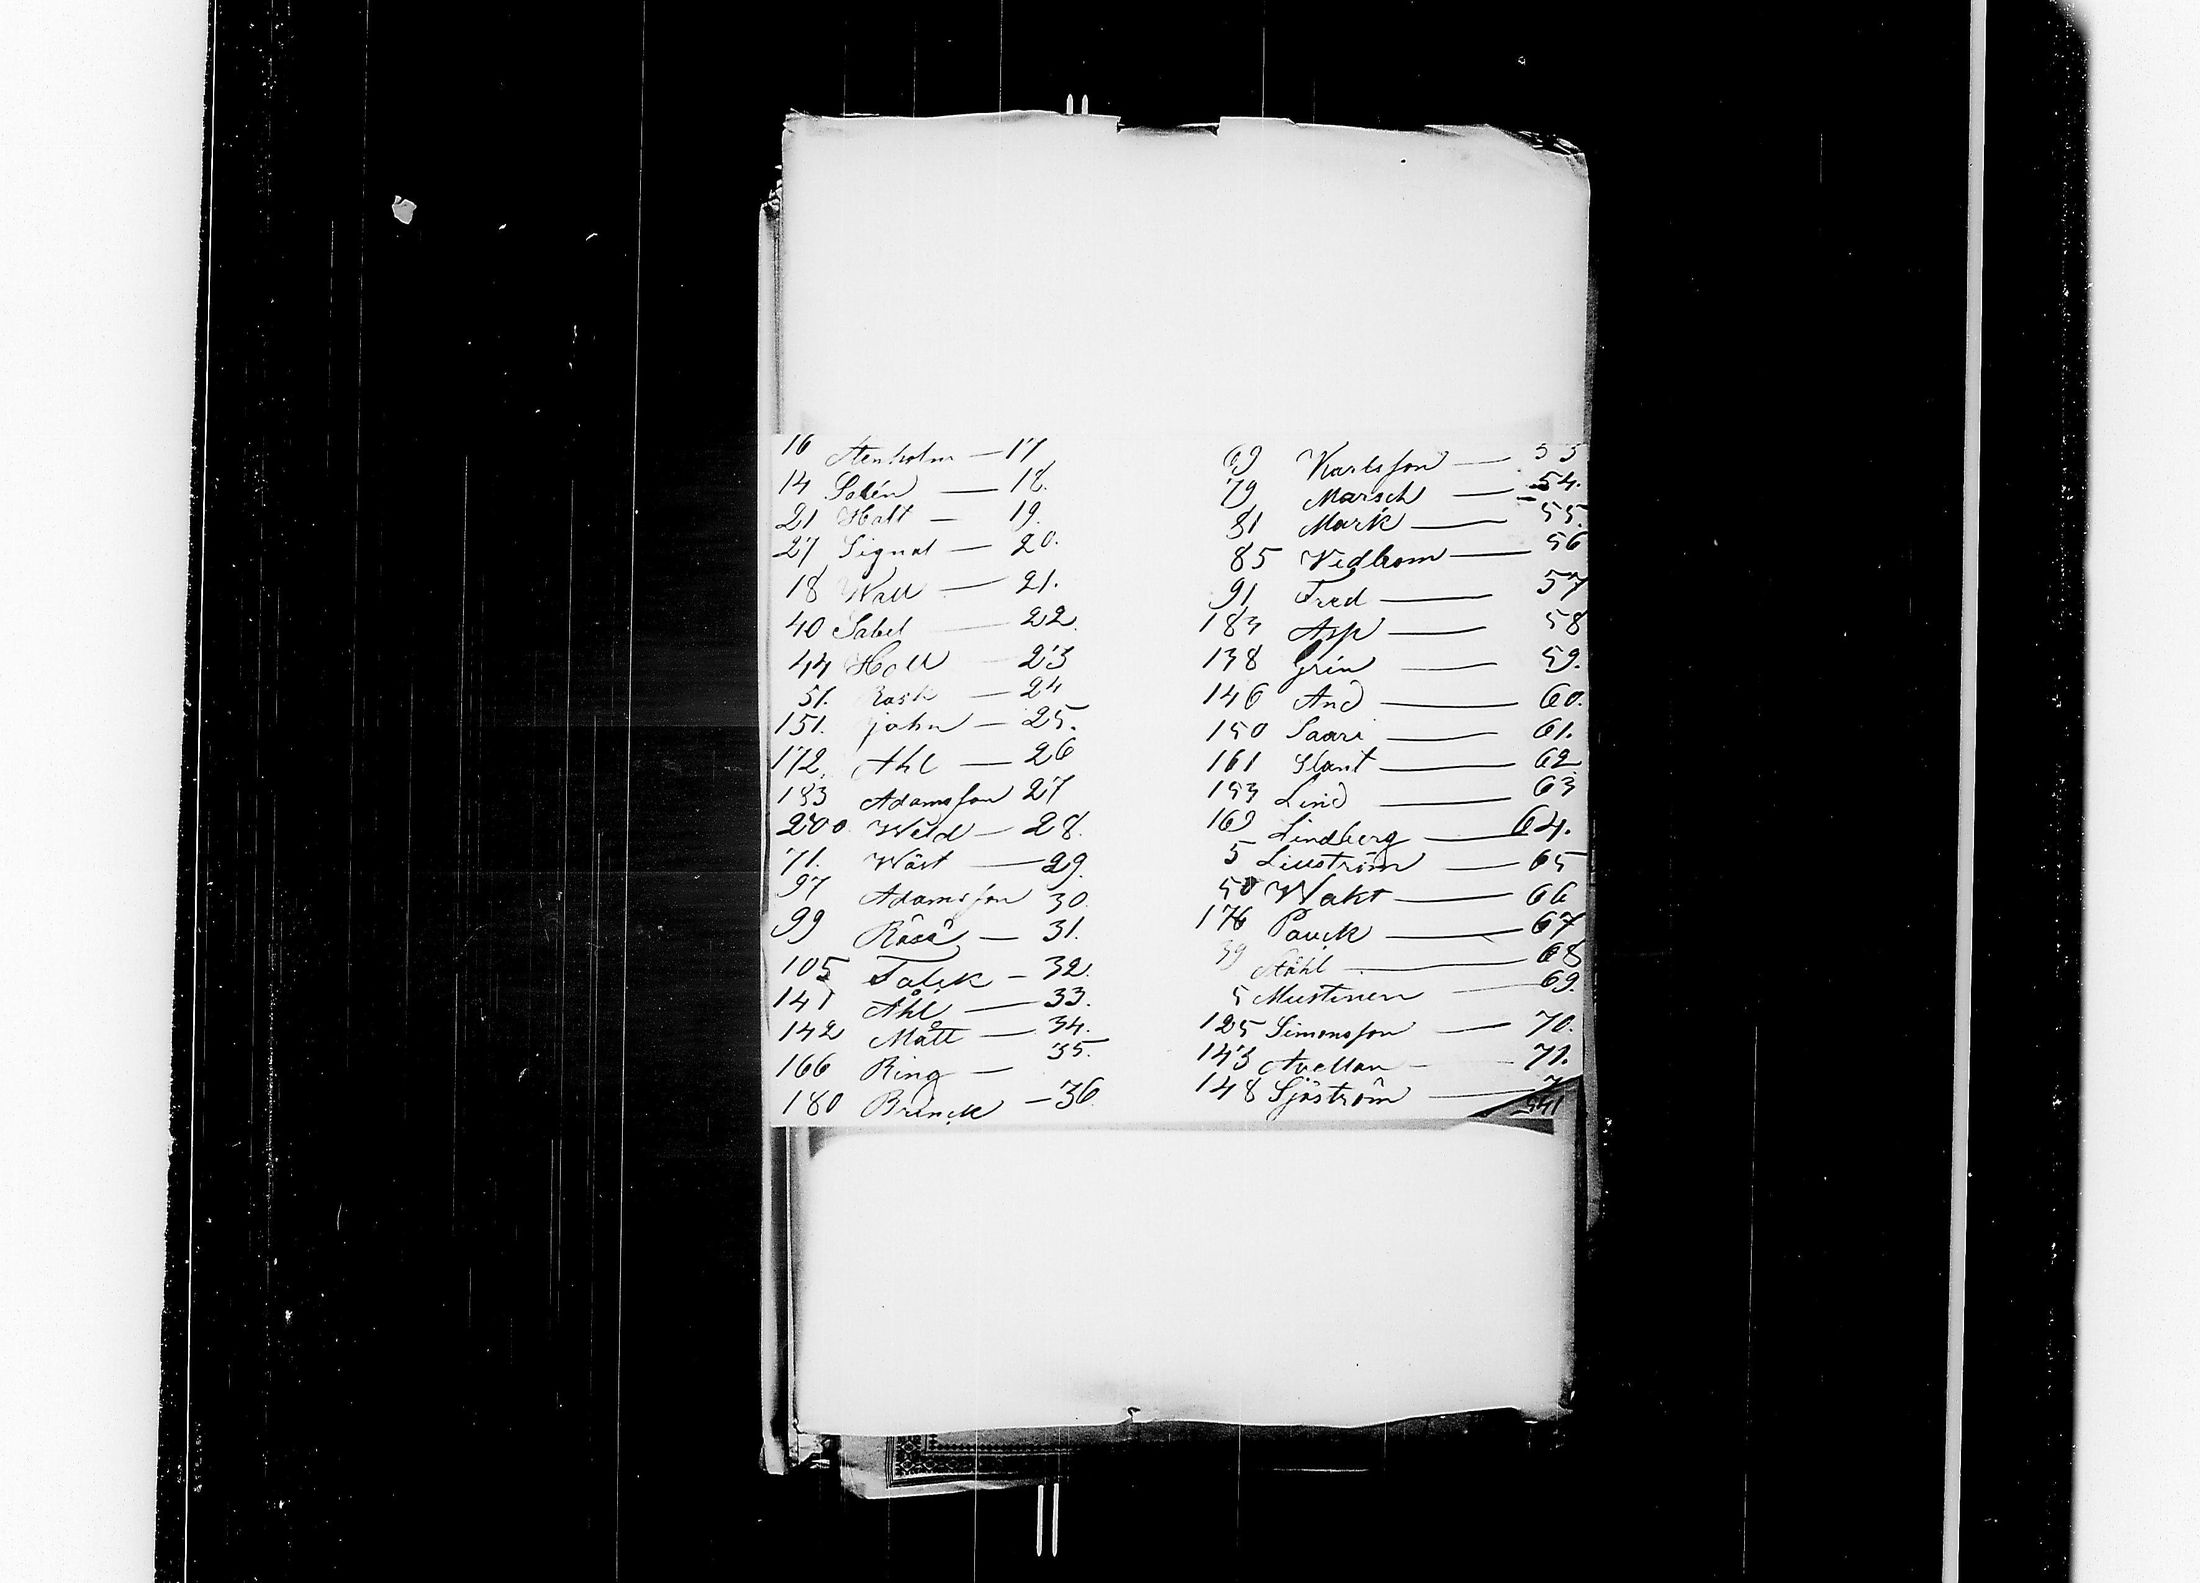 16 Stenholm — 17
14 Solén — 18.
21 Halt — 19.
27 Signal — 20.
18 Wall — 21.
40 Sabel — 22.
44 Holl — 23
51. Rask — 24
151. John — 25.
172. Ahl — 26
193 Adamsson 27
200 Weld — 28.
71. Wäst — 29.
97 Adamsson 30.
99 Råså — 31.
105 Talck — 32.
141 Åhl — 33.
142 Mått — 34.
166 Ring — 35.
180 Brinck — 36
69 Karlsson — 53
79 Marsch — 54.
81 Mark — 55.
85 Vedbom — 56
91 Fred — 57
183 Asp — 58
138 Grén — 59.
146 And — 60.
150 Saari — 61.
161 Slant — 62
153 Lind — 63
169 Lindberg — 64.
5 Liuström — 65
50 Wakt — 66
176 Pauck — 67
39 Ståhl — 68
5 Mustinen — 69.
125 Simonsson — 70.
143 Avellan — 71.
148 Sjöström — 7
541